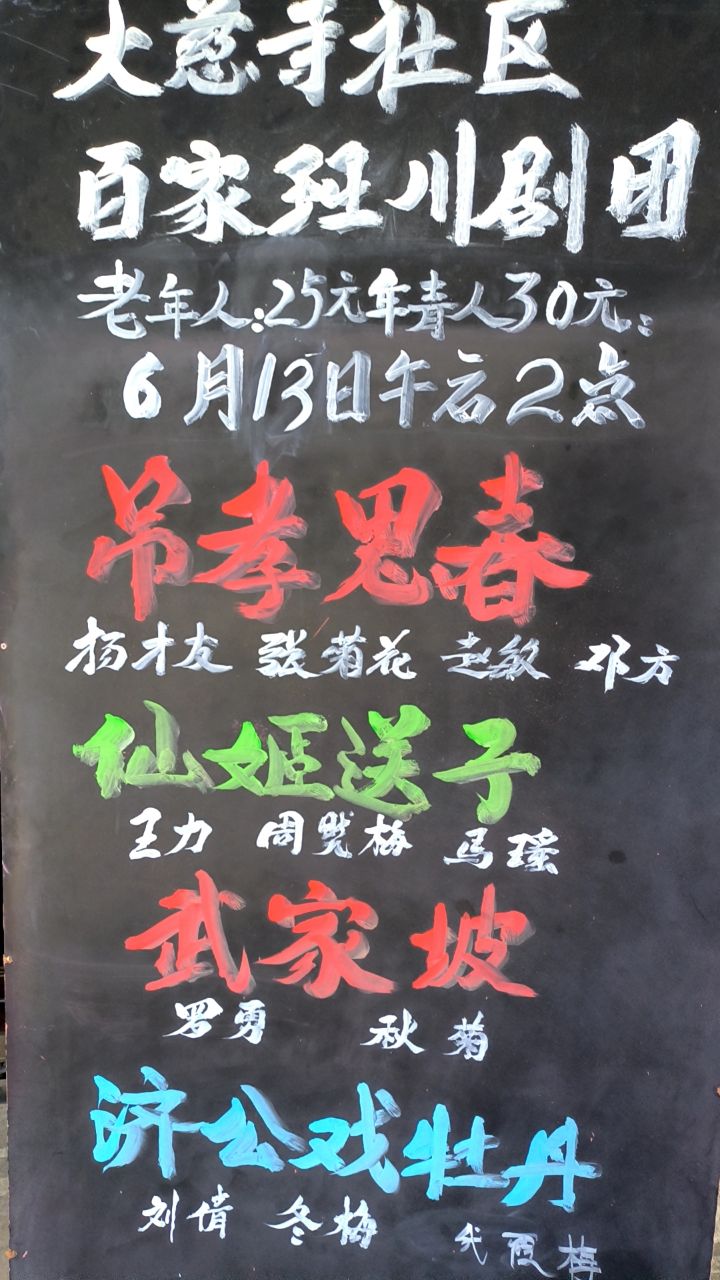 大慈寺社区
百家班川剧团
老年人:25元年青人30元:
6月13日午后2点
吊孝思春
杨才友 张菊花 赵敏 邓方
仙姬送子
王力 周 梅 马瑶
武家坡
罗勇 秋菊
济公戏牡丹
刘倩 冬梅 梅